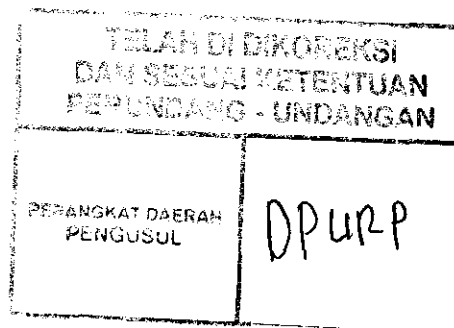 TELAH DI DIKOREKSI
DAN SESUAI KETENTUAN
PERUNDANG - UNDANGAN
PERANGKAT DAERAH
PENGUSUL
DPURP